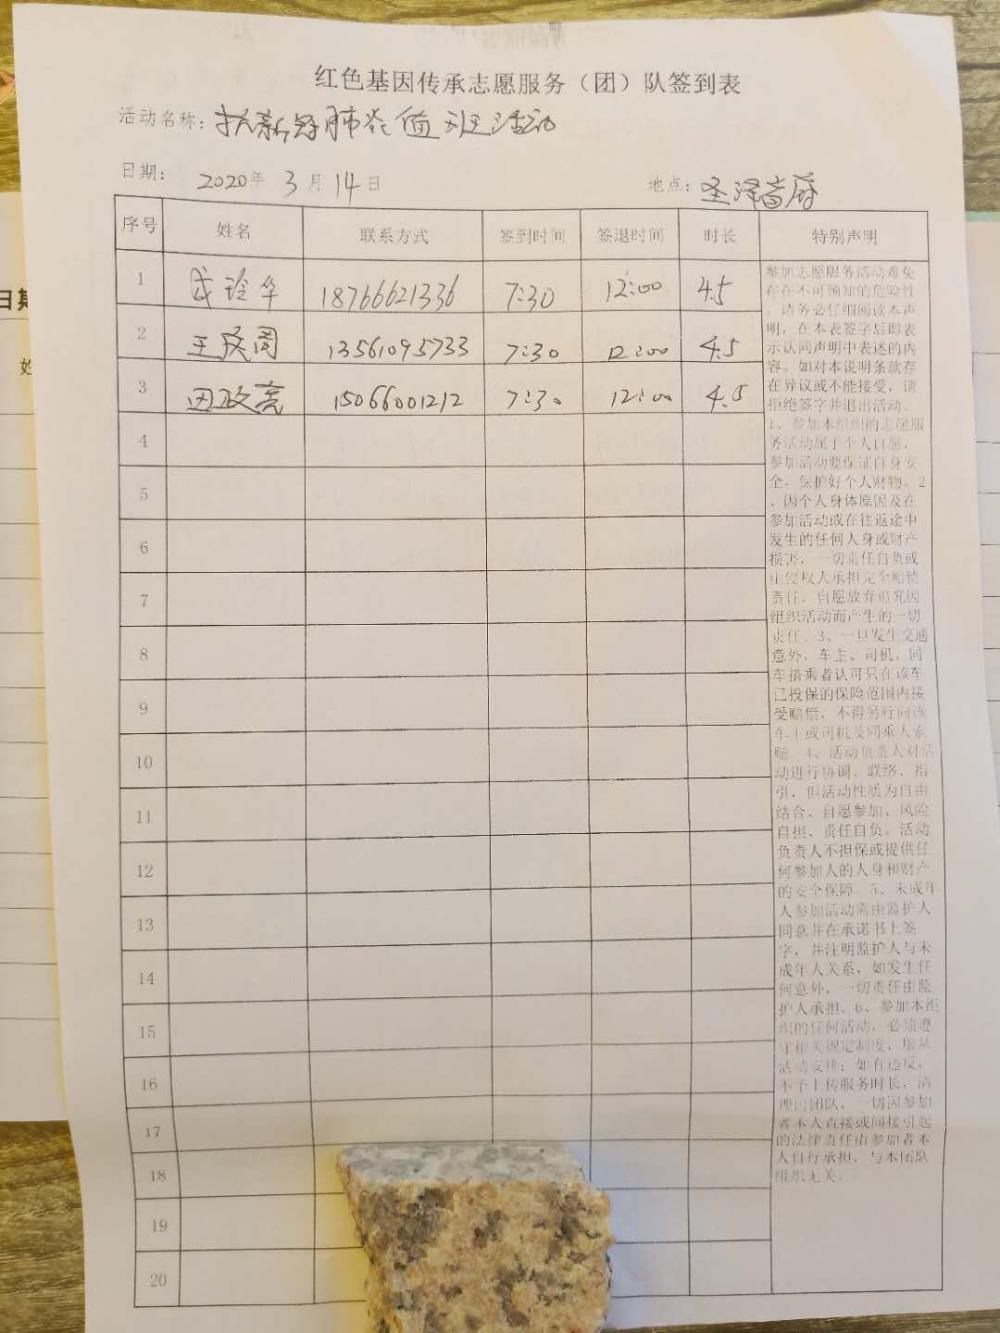 红色基因传承志愿服务（团）队签到表
活动名称：抗新冠肺炎值班活动
日期： 2020年 3月14日 地点：圣泽首府
序号 姓名 联系方式 签到时间 签退时间 时长 特别声明
1 18766621336 7:30 12:00 4.5
2 13561095733 7:30 12:00 4.5
3 15066001212 7:30 12:00 4.5
4
5
6
7
8
9
10
11
12
13
14
15
16
17
18
19
20
参加志愿服务活动难免
存在不可预知的危险性
，请务必仔细阅读本声
明，在本表签字后即表
示认同声明中表述的内
容。如对本说明条款存
在异议或不能接受，请
拒绝签字并退出活动。
1、参加本组织的志愿服
务活动属于个人自愿，
参加活动要保证自身安
全，保护好个人财物。2
、因个人身体原因及在
参加活动或在往返途中
发生的任何人身或财产
损害，一切责任自负或
由侵权人承担完全赔偿
责任，自愿放弃追究因
组织活动而产生的一切
责任。3、一旦发生交通
意外，车主、司机、同
车搭乘者认可只在该车
已投保的保险范围内接
受赔偿，不得另行向该
车主或司机及同乘人索
赔。4、活动负责人对活
动进行协调、联络、指
引，但活动性质为自由
结合、自愿参加、风险
自担、责任自负。活动
负责人不担保或提供任
何参加人的人身和财产
的安全保障。5、未成年
人参加活动需由监护人
同意并在承诺书上签
字，并注明监护人与未
成年人关系，如发生任
何意外，一切责任由监
护人承担。6、参加本组
织的任何活动，必须遵
守相关规定制度，服从
活动安排；如有违反，
不予上传服务时长，清
理出团队，一切因参加
者本人直接或间接引起
的法律责任由参加者本
人自行承担，与本团队
组织无关。
日期
姓